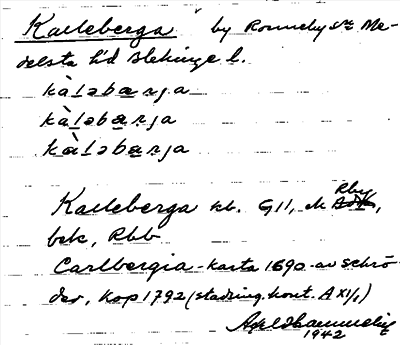 Kalleberga by Ronneby sn Me-
delsta hd Blekinge l.
kàləbærja
kàləbærja
kàləbærja
Kalleberga kb. G11, ch Rby,
bek, Rbb
Carlbergia - karta 1690 av Schrö-
der, kop 1792 (stadsing. kont. A XI/1)
1942